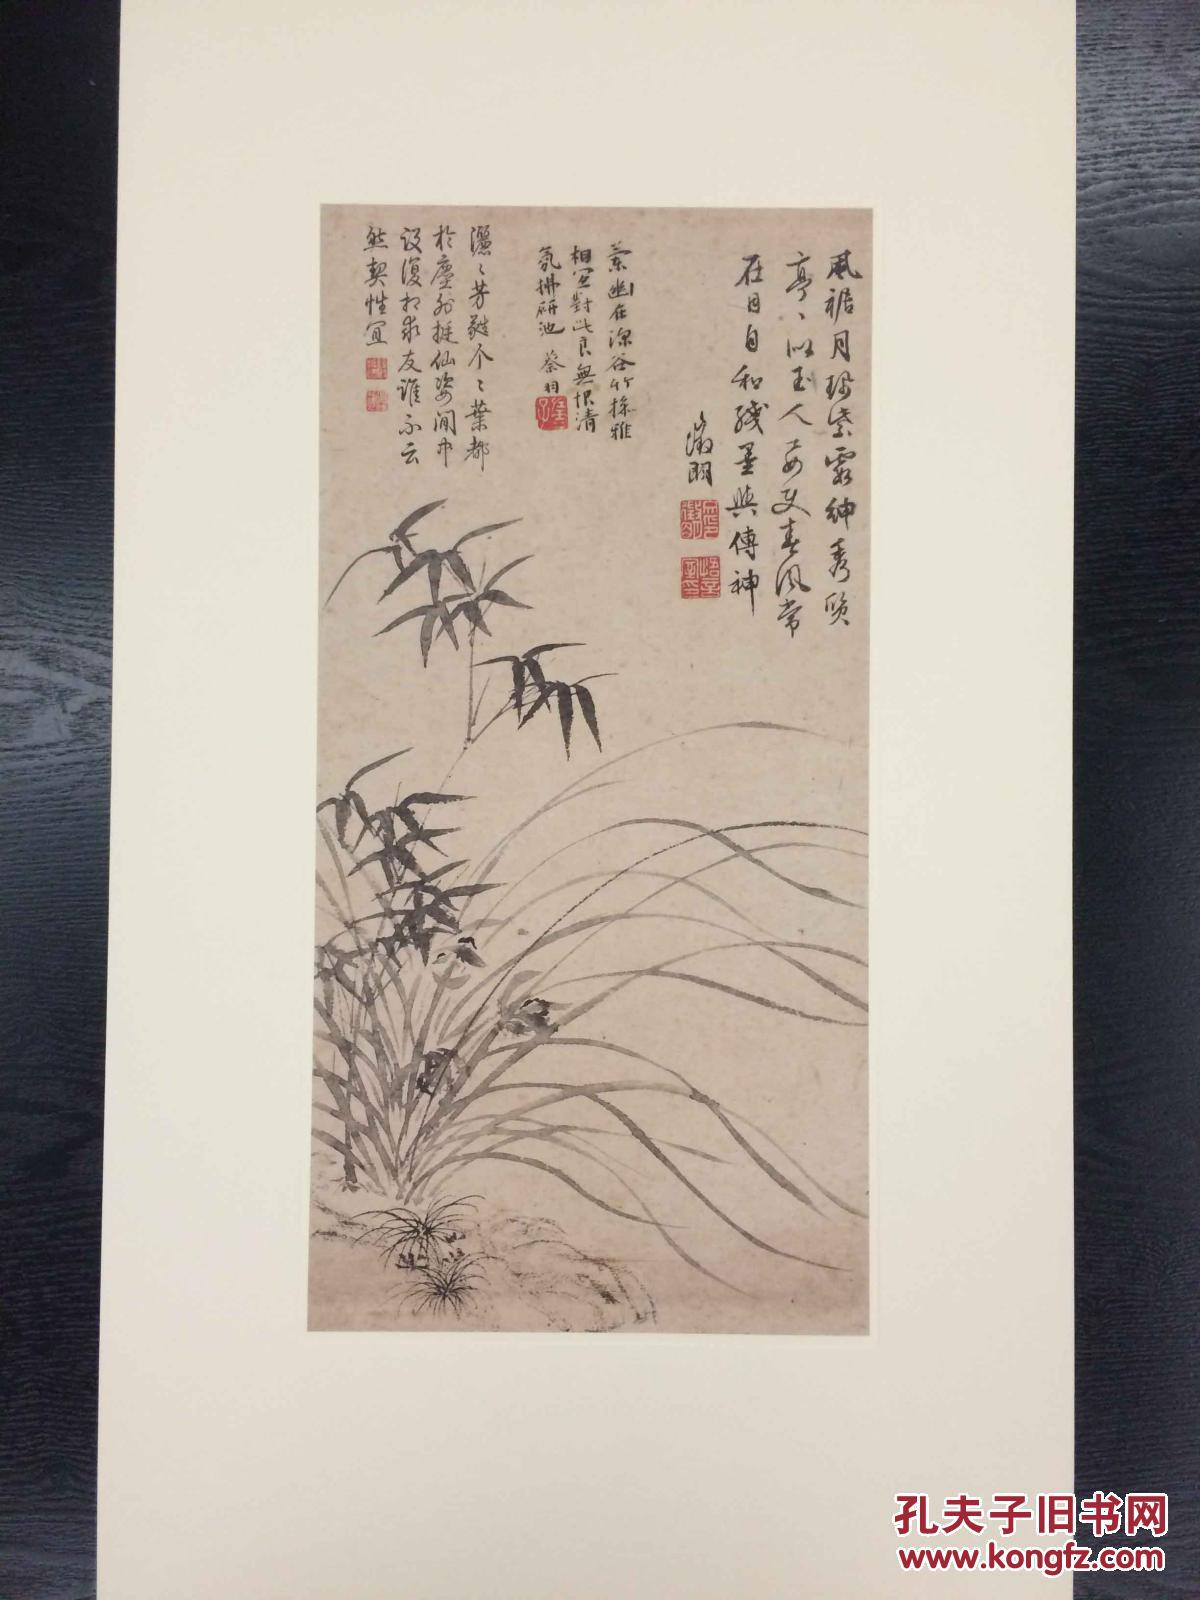 風裾月珮紫霞紳秀質
亭〻似玉人要使春風常
在目自和殘墨與傳神
徵明
蘭幽在深谷竹操雅
相宜對此良無恨清
氣拂硯池 蔡羽
灑〻芳蕤个〻葉都
於塵外挺仙姿閒中
設復相求友誰不云
然契性宜
孔夫子旧书网
www.kongfz.com